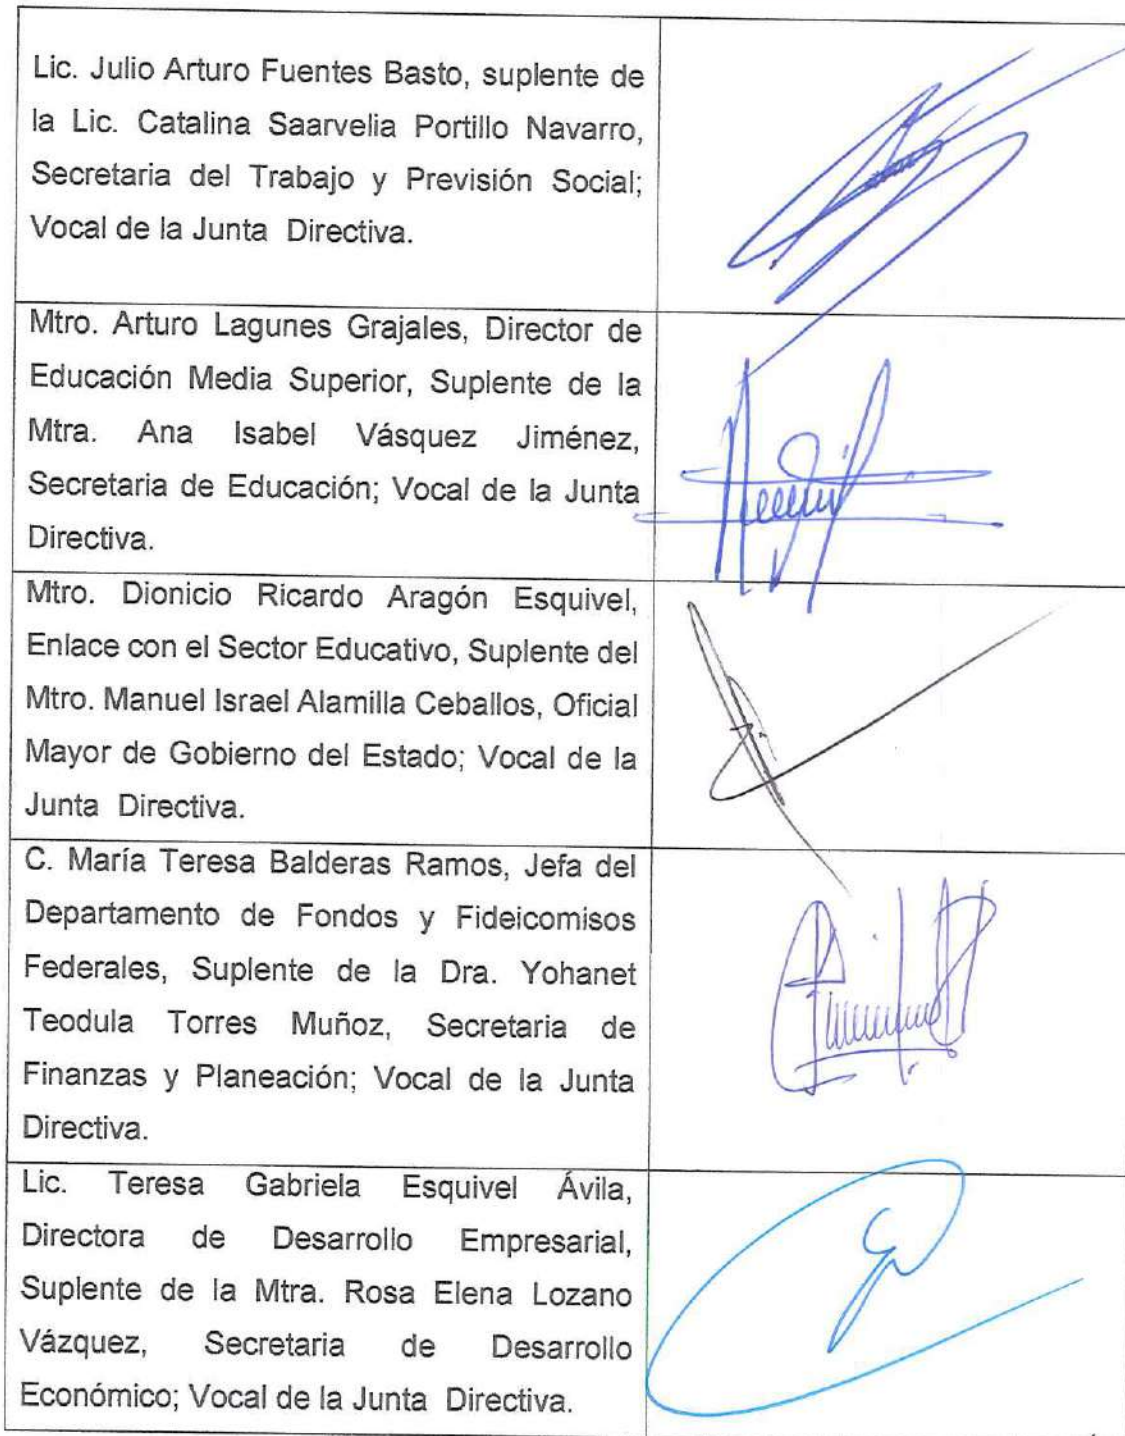 Lic. Julio Arturo Fuentes Basto, suplente de
la Lic. Catalina Saarvelia Portillo Navarro,
Secretaria del Trabajo y Previsión Social;
Vocal de la Junta Directiva.
Mtro. Arturo Lagunes Grajales, Director de
Educación Media Superior, Suplente de la
Mtra. Ana Isabel Vásquez Jiménez,
Secretaria de Educación; Vocal de la Junta
Directiva.
Mtro. Dionicio Ricardo Aragón Esquivel,
Enlace con el Sector Educativo, Suplente del
Mtro. Manuel Israel Alamilla Ceballos, Oficial
Mayor de Gobierno del Estado; Vocal de la
Junta Directiva.
C. María Teresa Balderas Ramos, Jefa del
Departamento de Fondos y Fideicomisos
Federales, Suplente de la Dra. Yohanet
Teodula Torres Muñoz, Secretaria de
Finanzas y Planeación; Vocal de la Junta
Directiva.
Lic. Teresa Gabriela Esquivel Ávila,
Directora de Desarrollo Empresarial,
Suplente de la Mtra. Rosa Elena Lozano
Vázquez, Secretaria de Desarrollo
Económico; Vocal de la Junta Directiva.